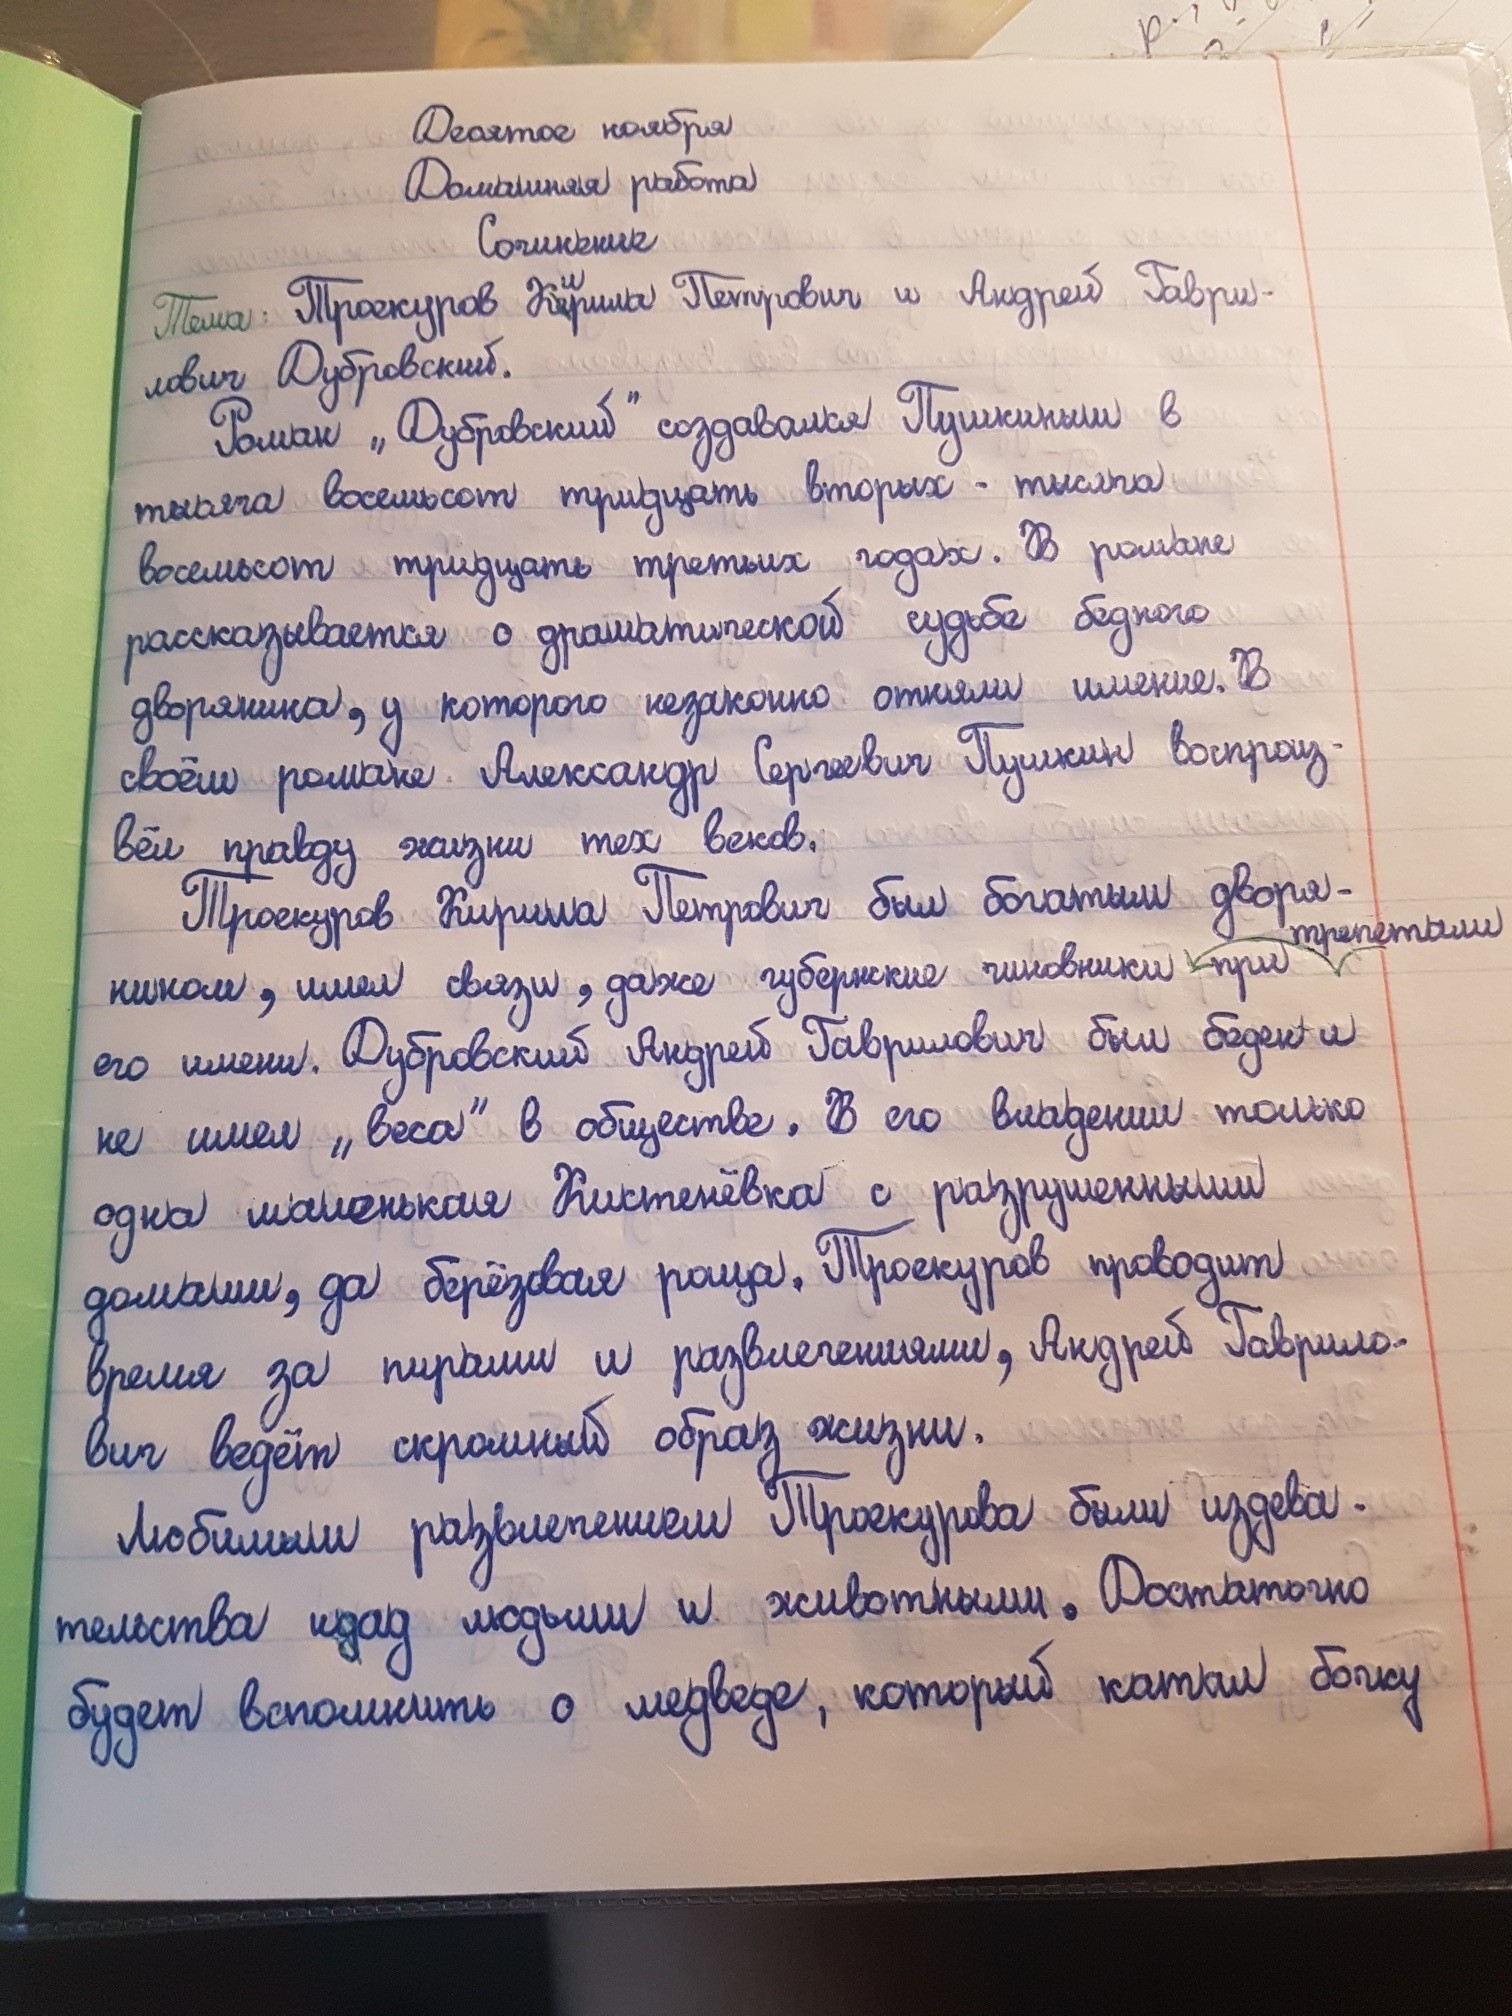 Десятое ноября
Домашняя работа
Сочинение
Тема: Троекуров Кирила Петрович и Андрей Гаври-
лович Дубровский.
Роман „Дубровский" создавался Пушкиным в
тысяча восемьсот тридцать вторых - тысяча
восемьсот тридцать третьих годах. В романе
рассказывается о драматической судьбе бедного
дворянина, у которого незаконно отняли имение. В
своём романе Александр Сергеевич Пушкин воспроиз-
вёл правду жизни тех веков.
Троекуров Кирила Петрович был богатым дворя-
трепетали
нином, имел связи, даже губернские чиновники при
его имени. Дубровский Андрей Гаврилович был беден и
не имел „веса" в обществе. В его владении только
одна маленькая Кистенёвка с разрушенными
домами, да берёзовая роща. Троекуров проводит
время за пирами и развлечениями, Андрей Гаврило-
вич ведёт скромный образ жизни.
Любимым развлечением Троекурова были издева-
тельства над людьми и животными. Достаточно
будет вспомнить о медведе, который катал бочку